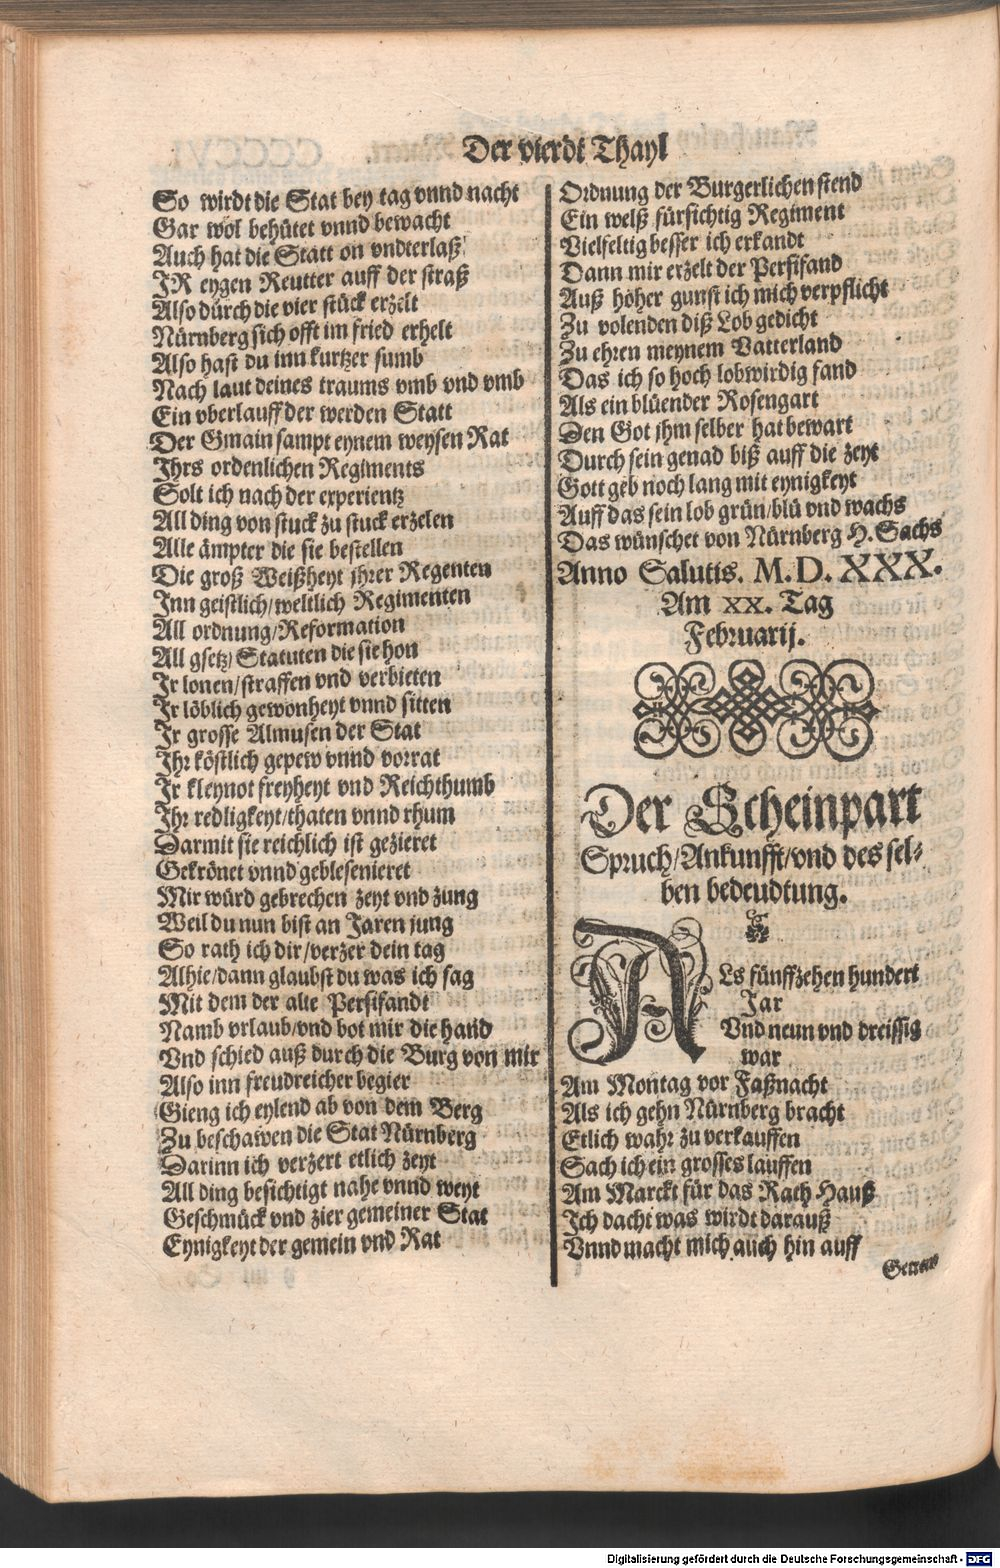 Der vierdt Thayl
So wirdt die Stat bey tag vnnd nacht
Gar wol behütet vnnd bewacht
Auch hat die Statt on vndterlaß
JR eygen Reutter auff der straß
Also durch die vier stück erzelt
Nürnberg sich offt im fried erhelt
Also hast du inn kurtzer sumb
Nach laut deines traums vmb vnd vmb
Ein vberlauff der werden Statt
Der Gmain sampt eynem weysen Rat
Ihrs ordenlichen Regiments
Solt ich nach der experientz
All ding von stuck zu stuck erzelen
Alle ämpter die sie bestellen
Die groß Weißheyt jhrer Regenten
Inn geistlich/weltlich Regimenten
All ordnung/Reformation
All gsetz/Statuten die sie hon
Ir lonen/straffen vnd verbieten
Ir löblich gewonheyt vnnd sitten
Ir grosse Almusen der Stat
Ihr köstlich gepew vnnd vorrat
Ir kleynot freyheyt vnd Reichthumb
Ihr redligkeyt/thaten vnnd rhum
Darmit sie reichlich ist gezieret
Gekrönet vnnd geblesenieret
Mir würd gebrechen zeyt vnd zung
Weil du nun bist an Jaren jung
So rath ich dir/verzer dein tag
Alhie/dann glaubst du was ich sag
Mit dem der alte Persifandt
Namb vrlaub/vnd bot mir die hand
Vnd schied auß durch die Burg von mir
Also inn freudreicher begier
Gieng ich eylend ab von dem Berg
Zu beschawen die Stat Nürnberg
Darinn ich verzert etlich zeyt
All ding besichtigt nahe vnnd weyt
Geschmück vnd zier gemeiner Stat
Eynigkeyt der gemein vnd Rat
Ordnung der Burgerlichen stend
Ein welß fürsichtig Regiment
Vielfeltig besser ich erkandt
Dann mir erzelt der Persifand
Auß höher gunst ich mich verpflicht
Zu volenden diß Lobgedicht
Zu ehren meynem Vatterland
Das ich so hoch lobwirdig fand
Als ein blüender Rosengart
Den Got jhm selber hat bewart
Durch sein genad biß auff die zeyt
Gott geb noch lang mit eynigkeyt
Auff das sein lob grün/blü vnd wachs
Das wünschet von Nürnberg H. Sachs
Anno Salutis. M. D. XXX.
Am XX. Tag
Februarij.
Der Scheinpart
Spruch/Ankunfft/vnd des sel⸗
ben bedeudtung.
ALs fünffzehen hundert
Jar
Vnd neun vnd dreissig
war
Am Montag vor Faßnacht
Als ich gehn Nürnberg bracht
Etlich wahr zu verkauffen
Sach ich ein grosses lauffen
Am Marckt für das Rath Hauß
Ich dacht was wirdt darauß
Vnnd macht mich auch hin auff
Digitalisierung gefördert durch die Deutsche Forschungsgemeinschaft - DFG